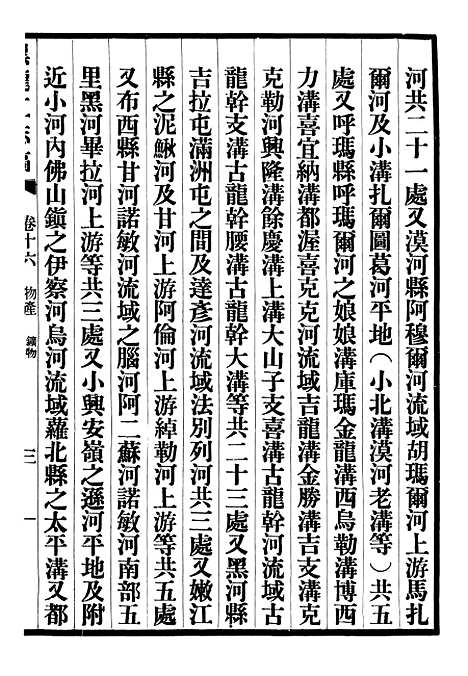 河共二十一處又漠河縣阿穆爾河流域胡瑪爾河上游馬扎
爾河及小溝扎爾圖葛河平地(小北溝漠河老溝等)共五
處又呼瑪縣呼瑪爾河之娘娘溝庫瑪金龍溝西烏勒溝博西
力溝喜宜納溝都渥喜克克河流域吉龍溝金勝溝吉支溝克
克勒河興隆溝餘慶溝上溝大山子支喜溝古龍幹河流域古
龍幹支溝古龍幹腰溝古龍幹大溝等共二十三處又黑河縣
吉拉屯滿洲屯之間及達彥河流域法別列河共三處又嫩江
縣之泥鰍河及甘河上游阿倫河上游綽勒河上游等共五處
又布西縣甘河諾敏河流域之腦河阿二蘇河諾敏河南部五
里黑河畢拉河上游等共三處又小興安嶺之遜河平地及附
近小河內佛山鎮之伊察河烏河流域蘿北縣之太平溝又都
卷十六 物產 鑛物 三一